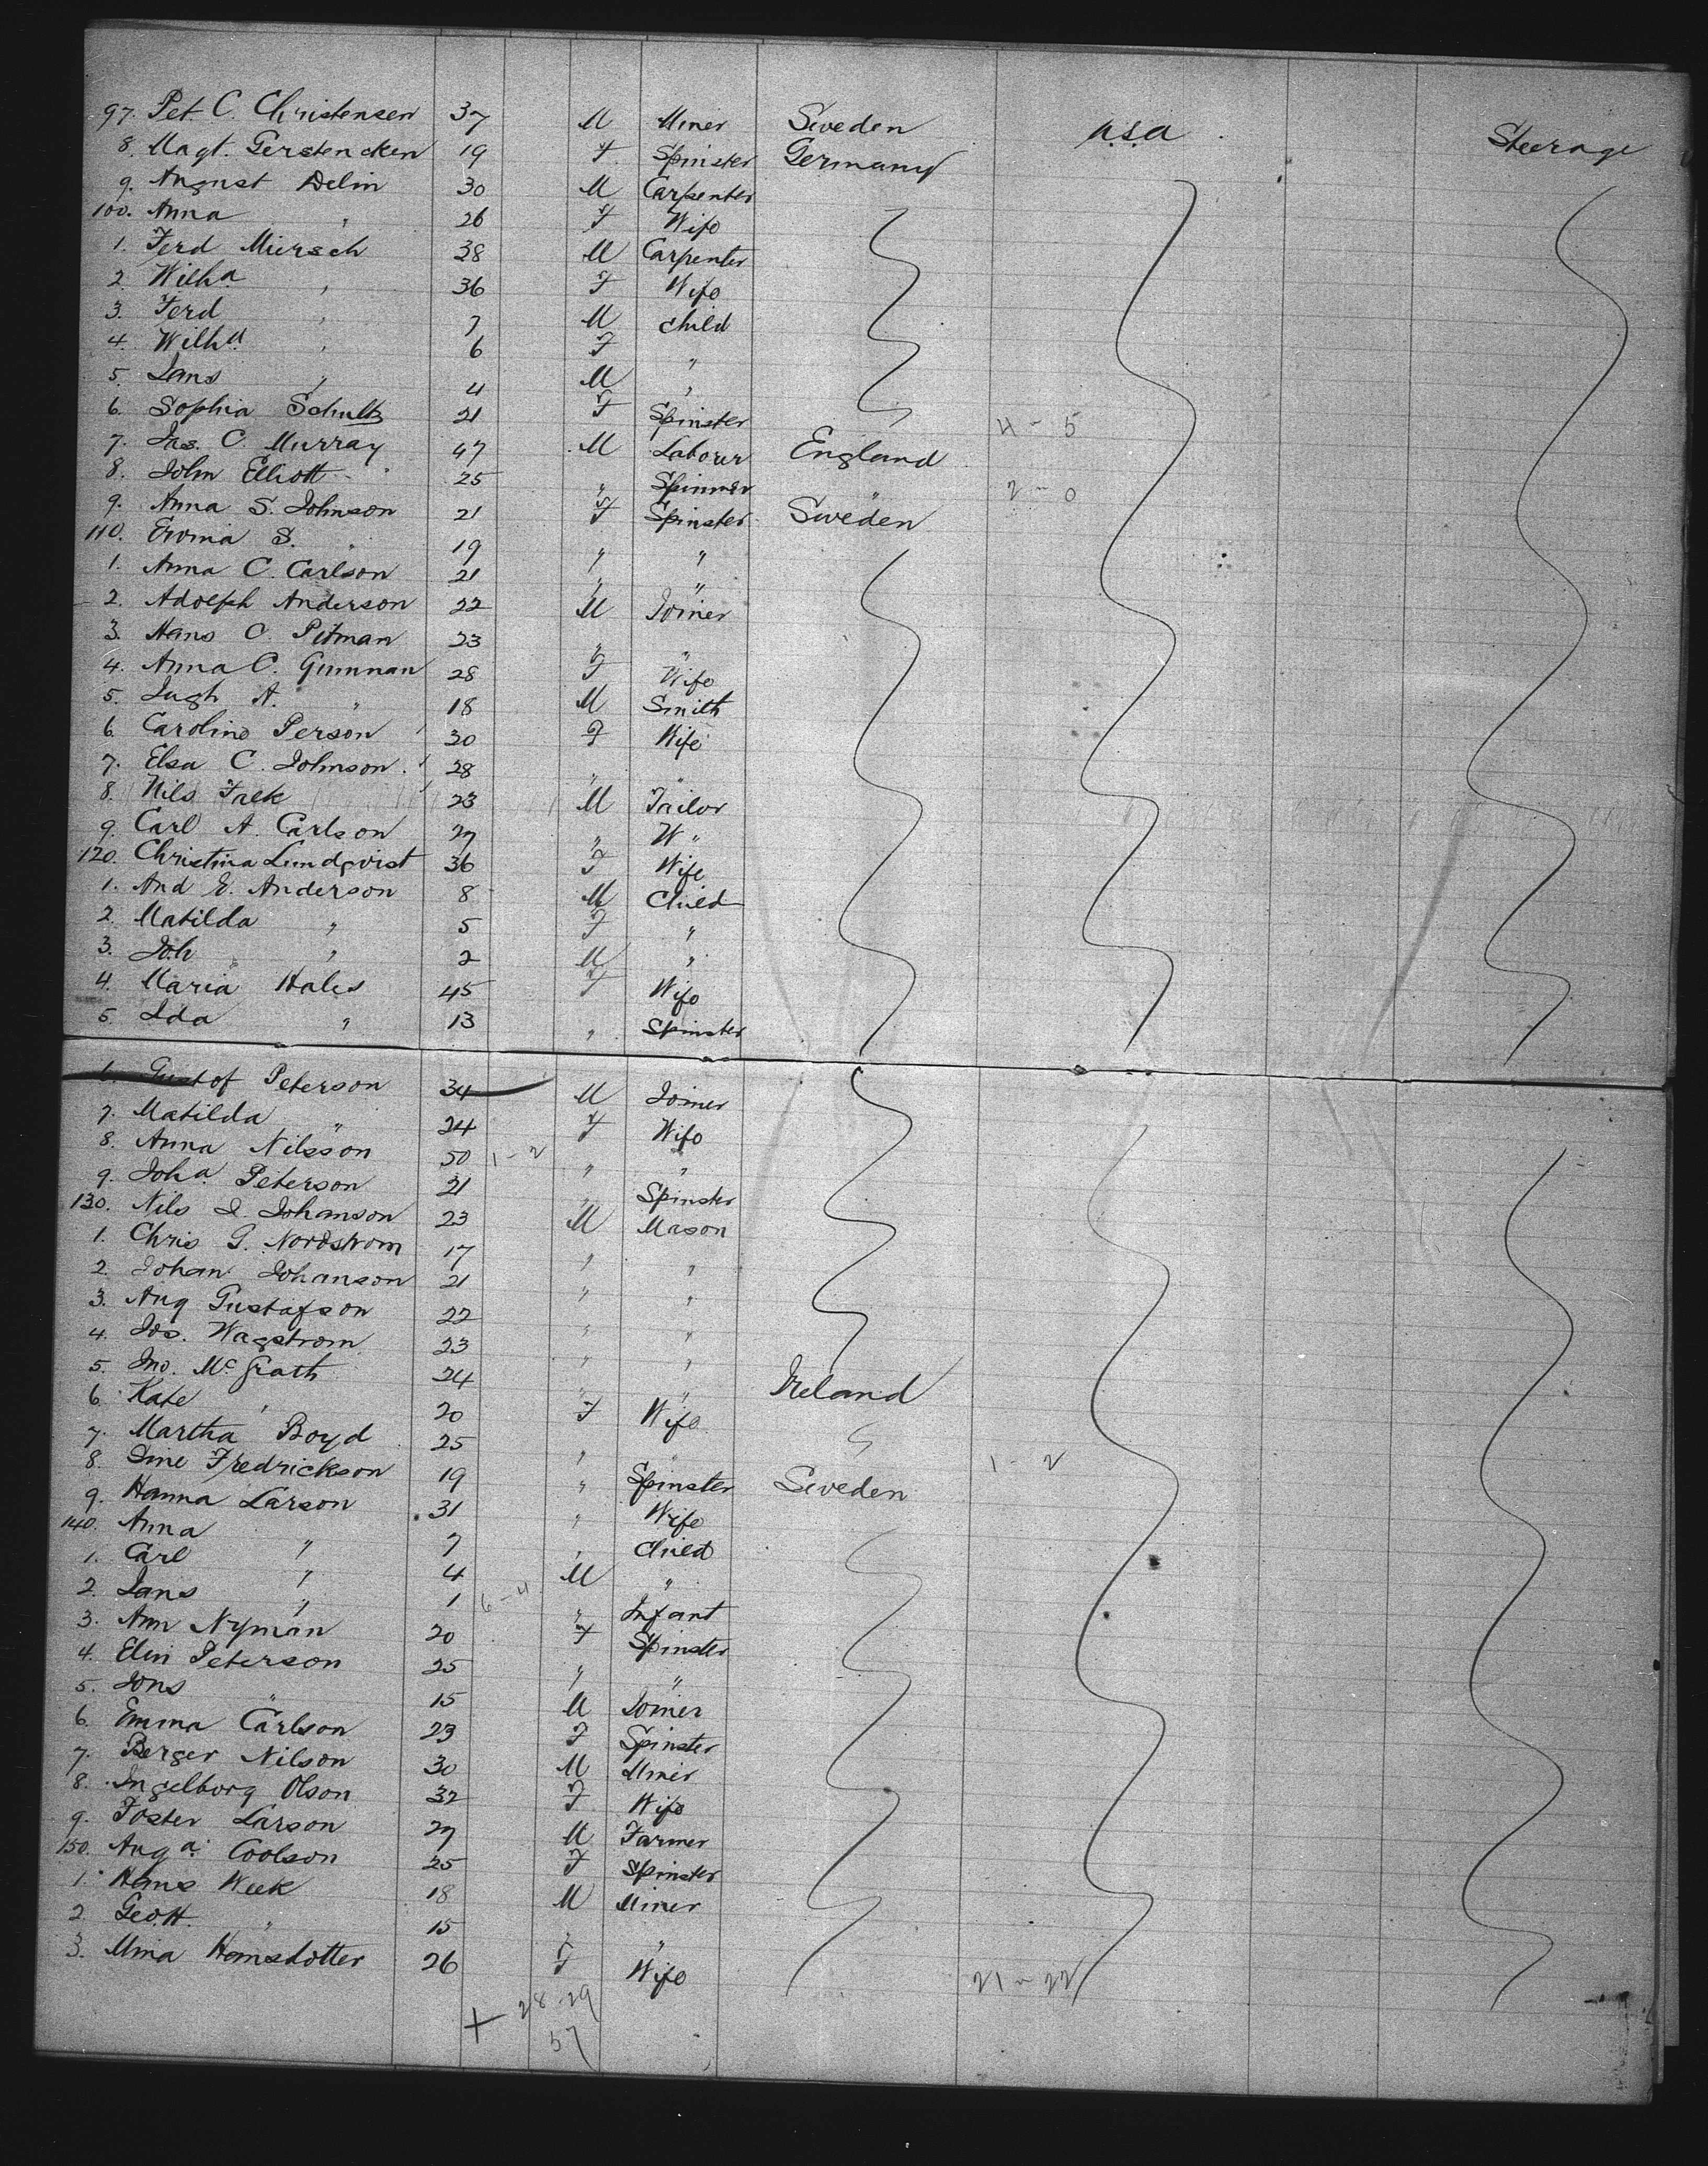 97. Pet. C. Christensen 37 M Miner Sweden U.S.A. Steerage
8. Magt. Gerstencken 19 F Spinster Germany
9. August Delin 30 M Carpenter
100. Anna " 26 F Wife
1. Ferd Miersch 38 M Carpenter
2. Wilha " 36 F Wife
3. Ferd " 7 M Child
4. Wilha " 6 F "
5. Jans " 4 M "
6. Sophia Schultz 21 F Spinster 4-5
7. Jas. C. Murray 47 M Laborer England
8. John Elliott 25 " Spinner " 2-0
9. Anna S. Johnson 21 F Spinster Sweden
110. Emma S. " 19 " "
1. Anna C. Carlson 21 " "
2. Adolph Anderson 22 M Joiner
3. Hans C. Pitman 23 " "
4. Anna C. Gumman 28 F Wife
5. A. " 18 M Smith
6. Caroline Person 30 F Wife
7. Elsa C. Johnson 28 " "
8. Nils Falk 23 M Tailor
9. Carl A. Carlson 27 " W "
120. Christina Lundqvist 36 F Wife
1. And E. Anderson 8 M Child
2. Matilda " 5 F "
3. Joh " 2 M "
4. Maria Hales 45 F Wife
5. Ida " 13 " Spinster
6. Gustof Peterson 34 M Joiner
7. Matilda " 24 F Wife
8. Anna Nilsson 50 1-2 " "
9. Joha Peterson 21 " Spinster
130. Nils J. Johanson 23 M Mason
1. Chris G. Nordstrom 17 " "
2. Johan Johanson 21 " "
3. Aug Gustafson 22 " "
4. Jos. Wagstrom 23 " "
5. Jno. McGrath 24 " " Ireland
6. Kate " 20 F Wife
7. Martha Boyd 25 " " 1-2
8. Sine Fredrickson 19 " Spinster Sweden
9. Hanna Larson 31 " Wife
140. Anna " 7 " Child
1. Carl " 4 M "
2. Jans " 1 6-4 " Infant
3. Ann Nyman 20 F Spinster
4. Elin Peterson 25 " "
5. Jons " 15 M Joiner
6. Emma Carlson 23 F Spinster
7. Berger Nilson 30 M Miner
8. Ingelborg Olson 32 F Wife
9. Foster Larson 27 M Farmer
150. Auga Coolson 25 F Spinster
1. Hans Week 18 M Miner
2. Geo. H. " 15 " "
3. Mina Hamsdotter 26 F Wife 21-22
+ 28-29
57